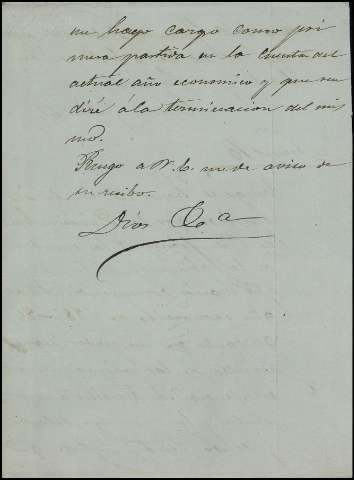 me hago cargo como pri
mera partida en la cuenta del
actual año economico y que ren
diré á la terminacion del mis
mo.
Ruego a V. E. me de aviso de
su recibo.
Dios &.a